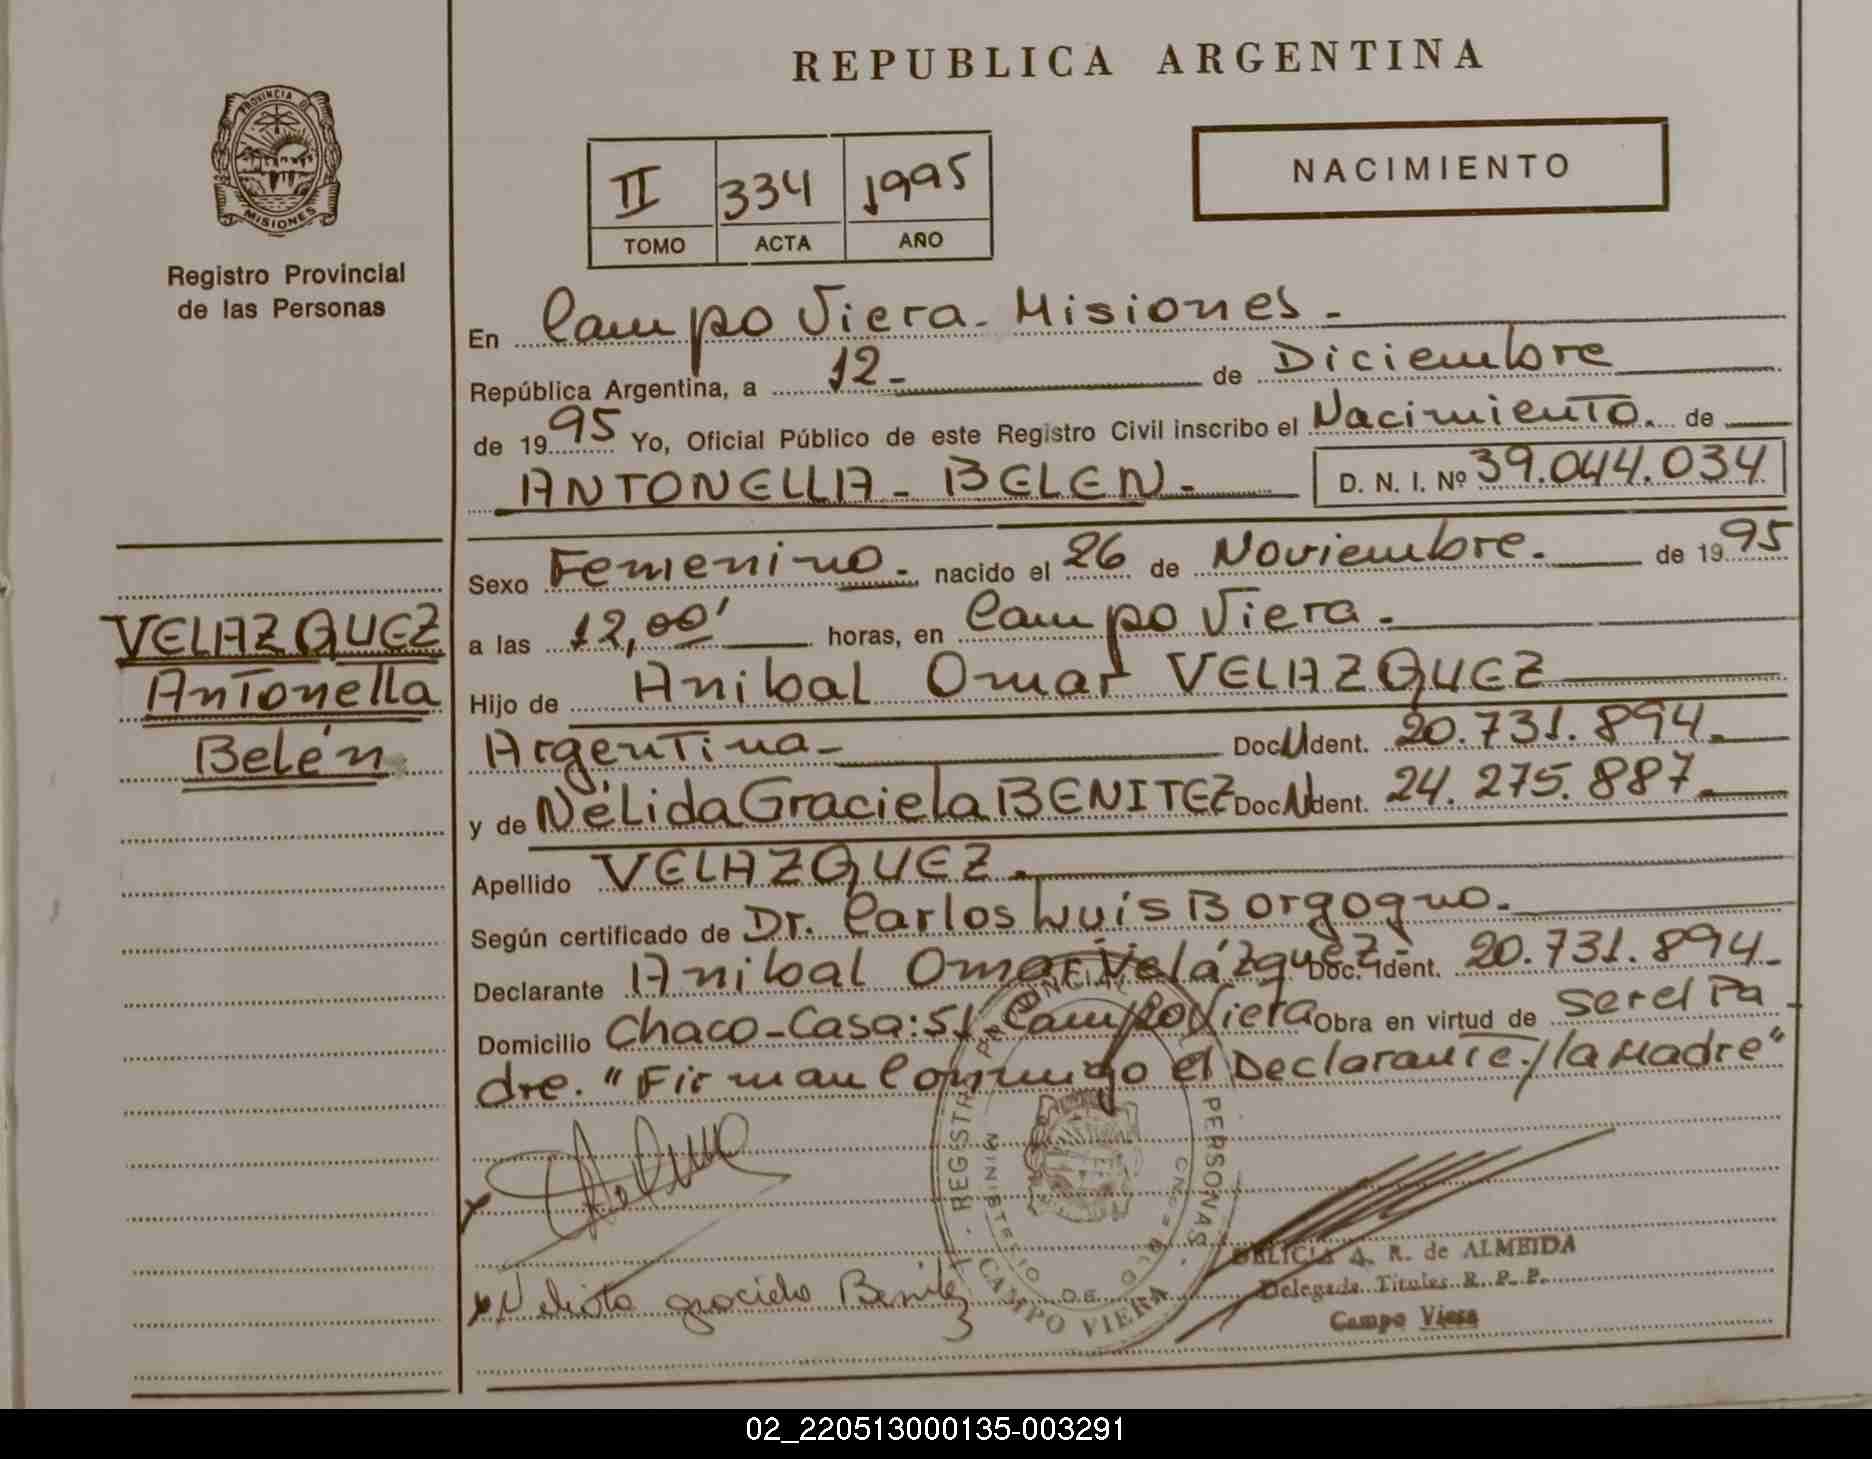 REPUBLICA ARGENTINA
PROVINCIA DE
MISIONES
Registro Provincial
de las Personas
NACIMIENTO
II 334 1995
TOMO ACTA AÑO
En Campo Viera - Misiones -
República Argentina, a 12 - de Diciembre
de 1995 Yo, Oficial Público de este Registro Civil inscribo el Nacimiento. de
ANTONELLA - BELEN - D. N. I. Nº 39.044.034
Sexo Femenino - nacido el 26 de Noviembre. de 1995
a las 12,00' horas, en Campo Viera -
Hijo de Anibal Omar VELAZQUEZ
Argentina - Doc. Ident. 20.731.894 -
y de Nélida Graciela BENITEZ Doc. Ident. 24.275.887 -
Apellido VELAZQUEZ -
Según certificado de Dr. Carlos Luis Borgogno -
Declarante Anibal Omar Velázquez - Doc. Ident. 20.731.894 -
Domicilio Chaco - Casa: 51 Campo Viera Obra en virtud de ser el Pa -
dre. "Firman Conmigo el Declarante y la Madre"
VELAZQUEZ
Antonella
Belén
graciela Benitez
REGISTRO PROVINCIAL PERSONAS
MINISTERIO DE
CAMPO VIERA
DELICIA A. R. de ALMEIDA
Delegada Titular R. P. P.
Campo Viera
02_220513000135-003291